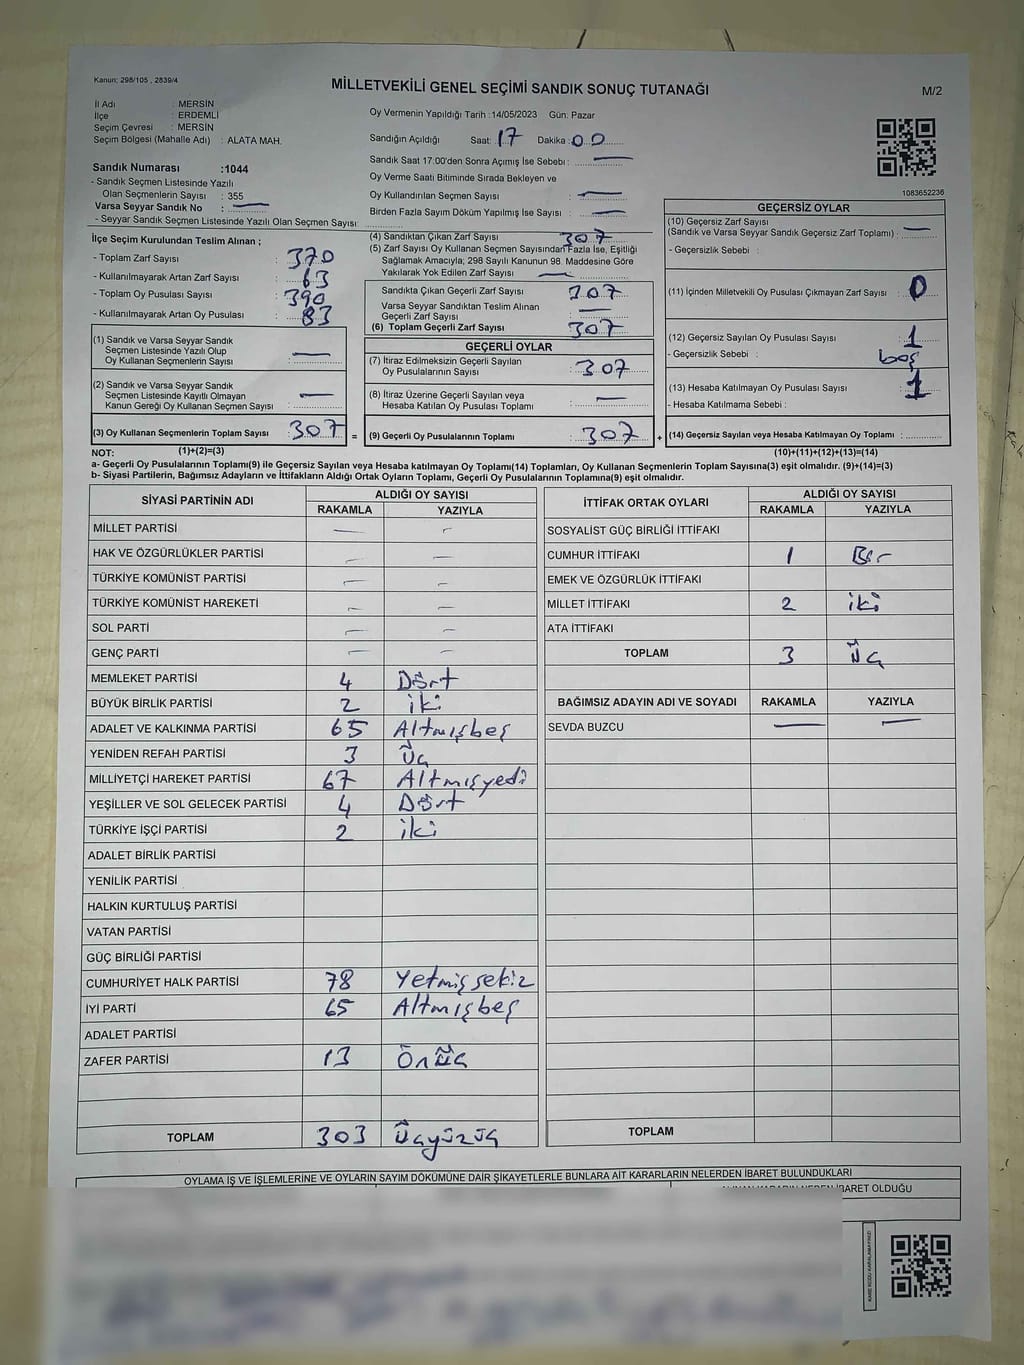 Kanun; 298/105 , 2839/4
MİLLETVEKİLİ GENEL SEÇİMİ SANDIK SONUÇ TUTANAĞI
M/2
İl Adı : MERSİN
İlçe : ERDEMLİ
Seçim Çevresi : MERSİN
Seçim Bölgesi (Mahalle Adı) : ALATA MAH.
Oy Vermenin Yapıldığı Tarih :14/05/2023 Gün: Pazar
Sandığın Açıldığı Saat: 17 Dakika : 00
Sandık Saat 17:00'den Sonra Açımış İse Sebebi : —
Oy Verme Saati Bitiminde Sırada Bekleyen ve
Oy Kullandırılan Seçmen Sayısı : —
Birden Fazla Sayım Döküm Yapılmış İse Sayısı : —
1083652236
Sandık Numarası :1044
- Sandık Seçmen Listesinde Yazılı
Olan Seçmenlerin Sayısı : 355
Varsa Seyyar Sandık No : —
- Seyyar Sandık Seçmen Listesinde Yazılı Olan Seçmen Sayısı:
İlçe Seçim Kurulundan Teslim Alınan ;
- Toplam Zarf Sayısı : 370
- Kullanılmayarak Artan Zarf Sayısı : 63
- Toplam Oy Pusulası Sayısı : 390
- Kullanılmayarak Artan Oy Pusulası : 83
(1) Sandık ve Varsa Seyyar Sandık
Seçmen Listesinde Yazılı Olup
Oy Kullanan Seçmenlerin Sayısı : —
(2) Sandık ve Varsa Seyyar Sandık
Seçmen Listesinde Kayıtlı Olmayan
Kanun Gereği Oy Kullanan Seçmen Sayısı : —
(3) Oy Kullanan Seçmenlerin Toplam Sayısı : 307
(4) Sandıktan Çıkan Zarf Sayısı : 307
(5) Zarf Sayısı Oy Kullanan Seçmen Sayısından Fazla İse, Eşitliği
Sağlamak Amacıyla; 298 Sayılı Kanunun 98. Maddesine Göre
Yakılarak Yok Edilen Zarf Sayısı : —
Sandıkta Çıkan Geçerli Zarf Sayısı : 307
Varsa Seyyar Sandıktan Teslim Alınan
Geçerli Zarf Sayısı : —
(6) Toplam Geçerli Zarf Sayısı : 307
GEÇERLİ OYLAR
(7) İtiraz Edilmeksizin Geçerli Sayılan
Oy Pusulalarının Sayısı : 307
(8) İtiraz Üzerine Geçerli Sayılan veya
Hesaba Katılan Oy Pusulası Toplamı : —
= (9) Geçerli Oy Pusulalarının Toplamı : 307
GEÇERSİZ OYLAR
(10) Geçersiz Zarf Sayısı
(Sandık ve Varsa Seyyar Sandık Geçersiz Zarf Toplamı) : —
- Geçersizlik Sebebi :
(11) İçinden Milletvekili Oy Pusulası Çıkmayan Zarf Sayısı : 0
(12) Geçersiz Sayılan Oy Pusulası Sayısı : 1
- Geçersizlik Sebebi : boş
(13) Hesaba Katılmayan Oy Pusulası Sayısı : 1
- Hesaba Katılmama Sebebi :
+ (14) Geçersiz Sayılan veya Hesaba Katılmayan Oy Toplamı :
NOT: (1)+(2)=(3) (10)+(11)+(12)+(13)=(14)
a- Geçerli Oy Pusulalarının Toplamı(9) ile Geçersiz Sayılan veya Hesaba katılmayan Oy Toplamı(14) Toplamları, Oy Kullanan Seçmenlerin Toplam Sayısına(3) eşit olmalıdır. (9)+(14)=(3)
b- Siyasi Partilerin, Bağımsız Adayların ve İttifakların Aldığı Ortak Oyların Toplamı, Geçerli Oy Pusulalarının Toplamına(9) eşit olmalıdır.
SİYASİ PARTİNİN ADI ALDIĞI OY SAYISI
RAKAMLA YAZIYLA
MİLLET PARTİSİ — —
HAK VE ÖZGÜRLÜKLER PARTİSİ — —
TÜRKİYE KOMÜNİST PARTİSİ — —
TÜRKİYE KOMÜNİST HAREKETİ — —
SOL PARTİ — —
GENÇ PARTİ — —
MEMLEKET PARTİSİ 4 Dört
BÜYÜK BİRLİK PARTİSİ 2 iki
ADALET VE KALKINMA PARTİSİ 65 Altmışbeş
YENİDEN REFAH PARTİSİ 3 Üç
MİLLİYETÇİ HAREKET PARTİSİ 67 Altmışyedi
YEŞİLLER VE SOL GELECEK PARTİSİ 4 Dört
TÜRKİYE İŞÇİ PARTİSİ 2 iki
ADALET BİRLİK PARTİSİ
YENİLİK PARTİSİ
HALKIN KURTULUŞ PARTİSİ
VATAN PARTİSİ
GÜÇ BİRLİĞİ PARTİSİ
CUMHURİYET HALK PARTİSİ 78 Yetmişsekiz
İYİ PARTİ 65 Altmışbeş
ADALET PARTİSİ
ZAFER PARTİSİ 13 Önüç
TOPLAM 303 Üçyüzüç
İTTİFAK ORTAK OYLARI ALDIĞI OY SAYISI
RAKAMLA YAZIYLA
SOSYALİST GÜÇ BİRLİĞİ İTTİFAKI
CUMHUR İTTİFAKI 1 Bir
EMEK VE ÖZGÜRLÜK İTTİFAKI
MİLLET İTTİFAKI 2 iki
ATA İTTİFAKI
TOPLAM 3 Üç
BAĞIMSIZ ADAYIN ADI VE SOYADI RAKAMLA YAZIYLA
SEVDA BUZCU — —
TOPLAM
OYLAMA İŞ VE İŞLEMLERİNE VE OYLARIN SAYIM DÖKÜMÜNE DAİR ŞİKAYETLERLE BUNLARA AİT KARARLARIN NELERDEN İBARET BULUNDUKLARI
İBARET OLDUĞU